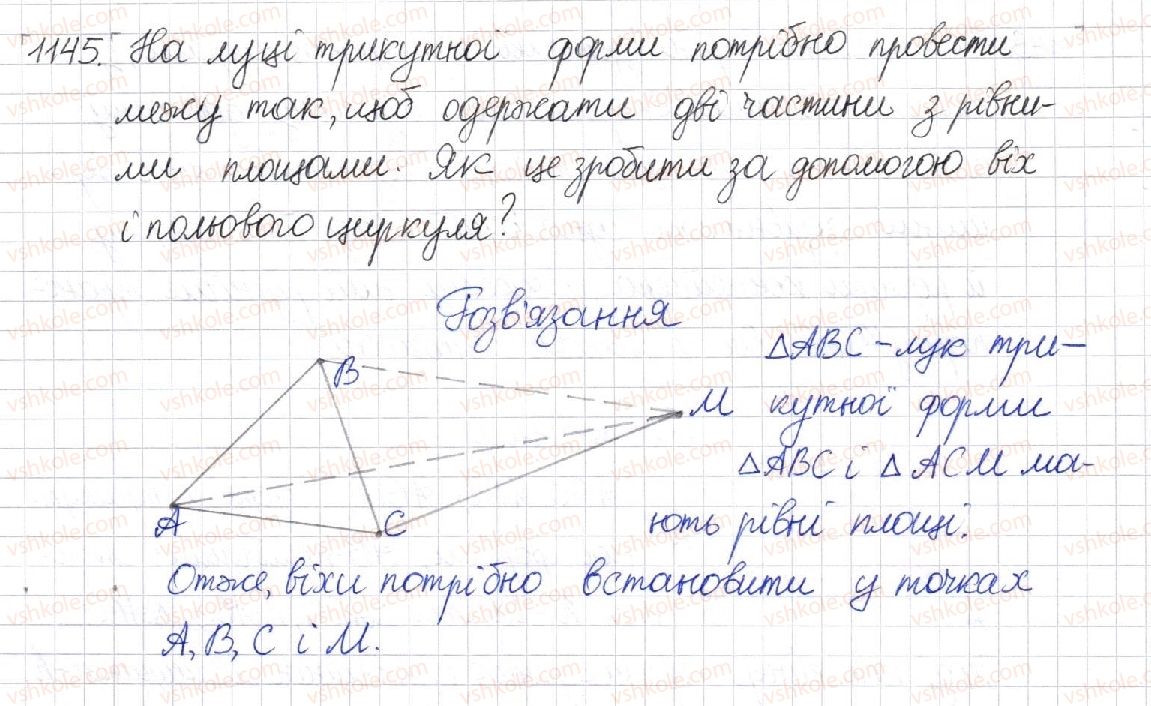 1145. На луці трикутної форми потрібно провести
межу так, щоб одержати дві частини з рівни-
ми площами. Як це зробити за допомогою віх
і польового циркуля?
Розв'язання
△ABC - лук три-
B
M кутної форми
△ABC і △ACM ма-
A C ють рівні площі.
Отже, віхи потрібно встановити у точках
A, B, C і M.